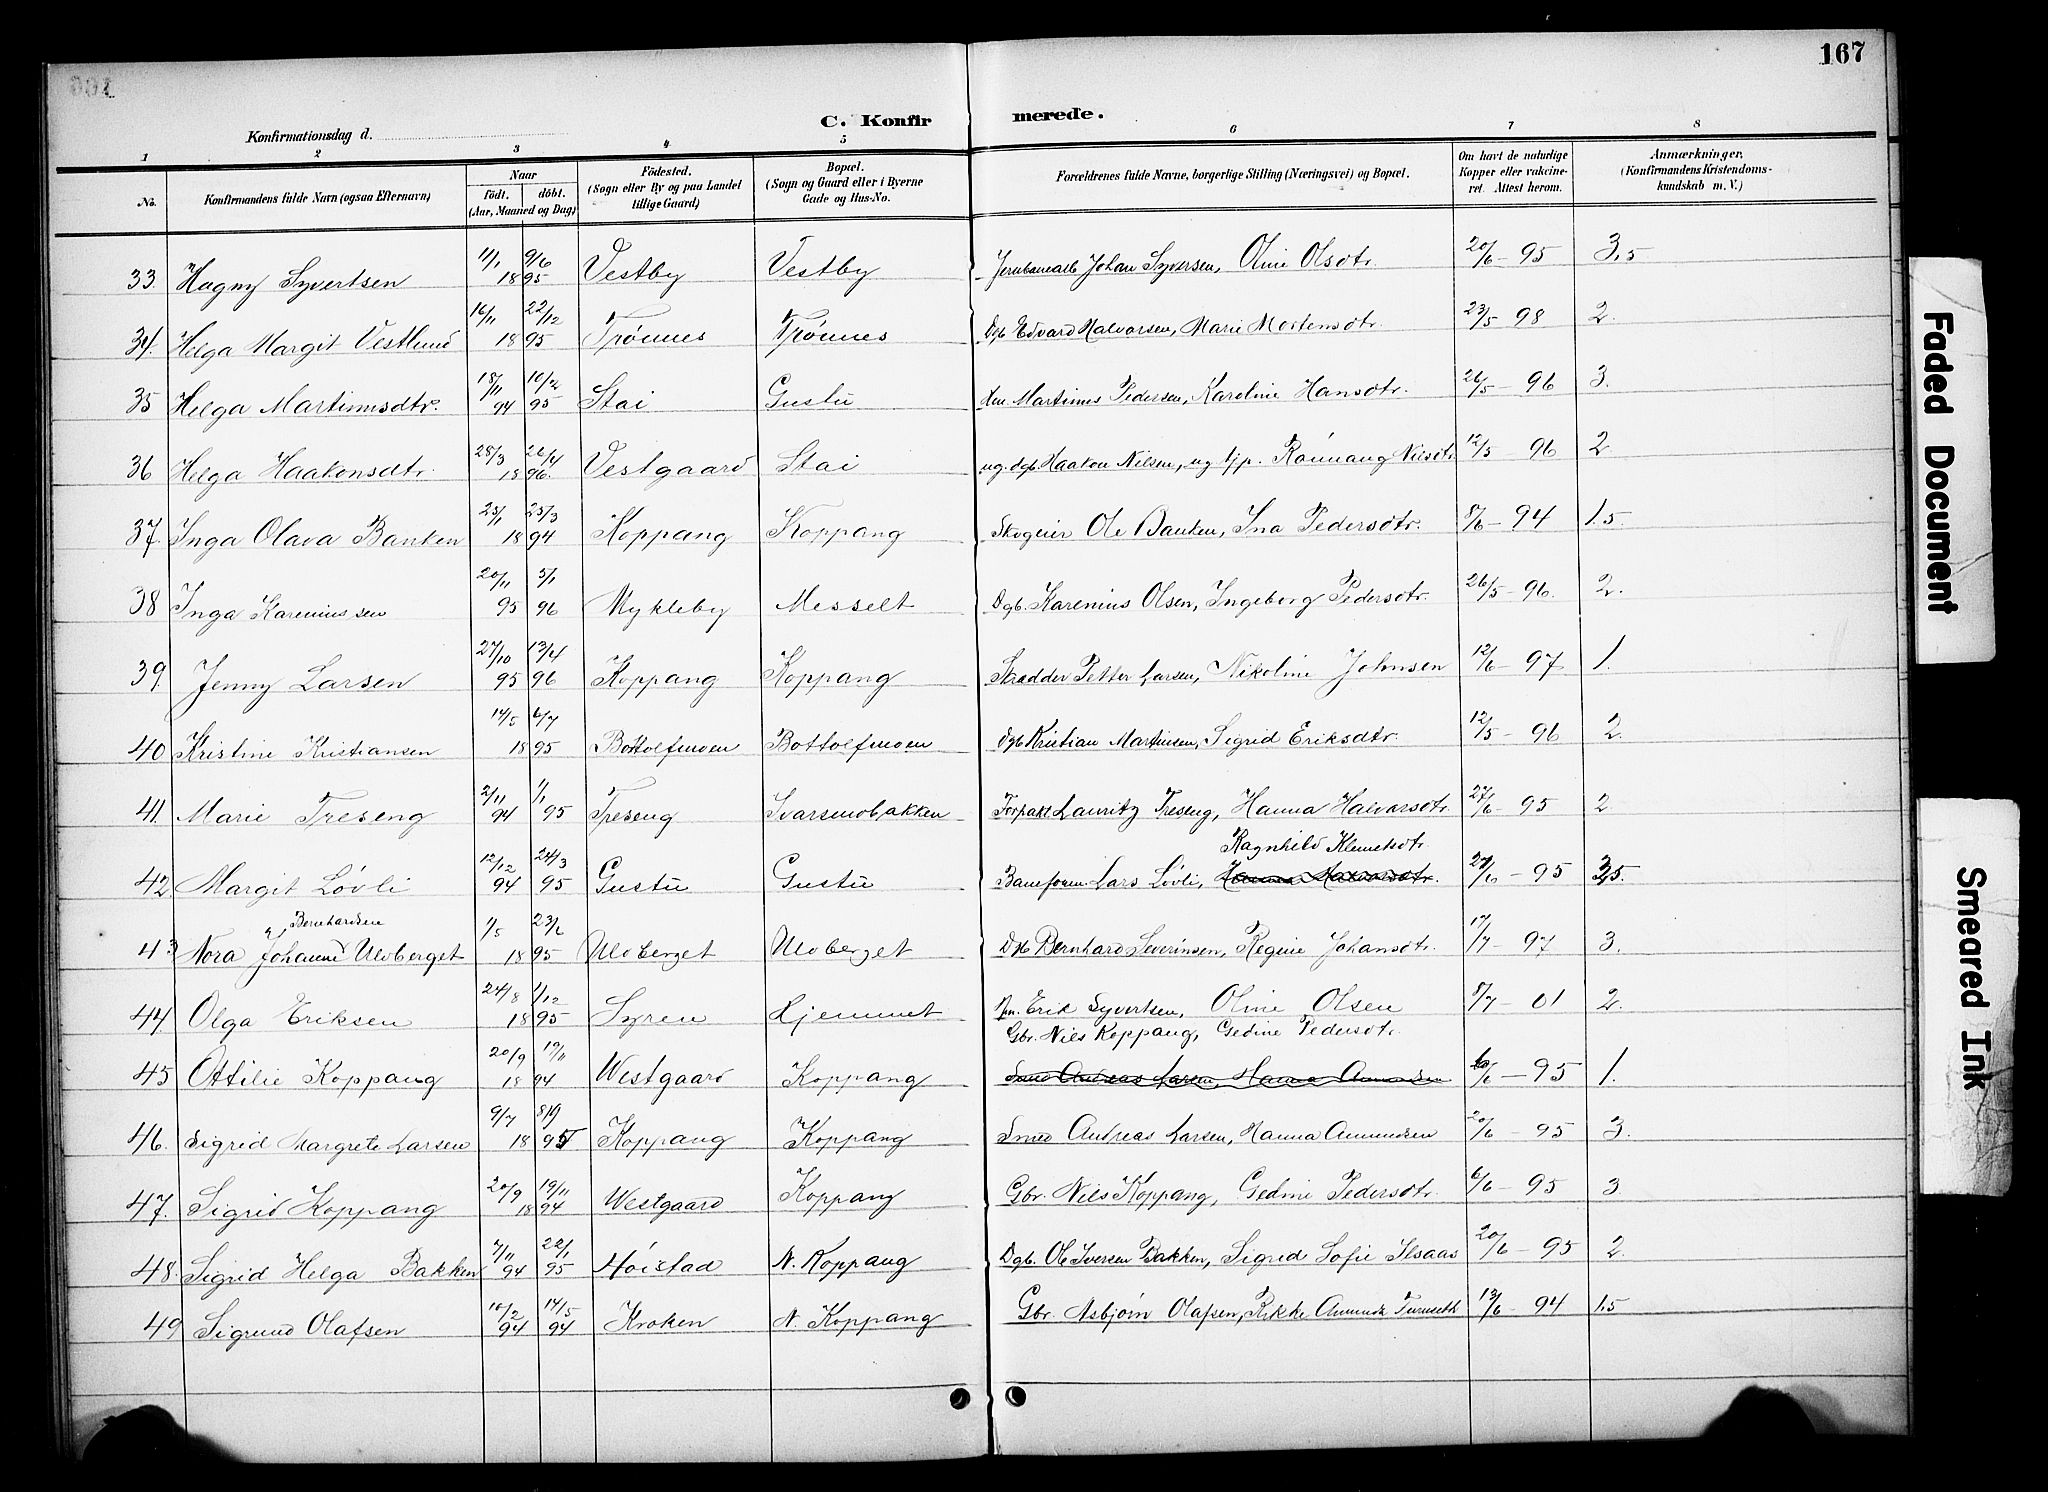 167
C. Konfirmerede.
Konfirmationsdag d.
1 2 3 4 5 6 7 8
No. Konfirmandens fulde Navn (ogsaa Efternavn) Naar født. døbt. (Aar, Maaned og Dag) Fødested. (Sogn eller By og paa Landet tillige Gaard) Bopæl. (Sogn og Gaard eller i Byerne Gade og Hus-No. Forældrenes fulde Navne, borgerlige Stilling (Næringsvei) og Bopæl. Om havt de naturlige Kopper eller vakcineret. Attest herom. Anmærkninger. (Konfirmandens Kristendomskundskab m. V.)
33. Hagny Syvertsen 11/1 9/6 1895 Vestby Vestby Jernbanearb Johan Syversen, Oline Olsdtr. 20/6 - 95 3,5
34. Helga Margit Vestlund 16/11 22/12 1895 Trønnes Trønnes Dgb Edvard Halvorsen, Marie Mortensdtr 23/5 98 2.
35 Helga Martinusdtr. 18/11 94 10/2 95 Stai Gustu Martinus Pedersen, Karoline Hansdtr. 26/5 - 96 3.
36 Helga Haakonsdtr. 28/3 26/4 1896. Vestgaard Stai ug. dgb. Haakon Nilsen, ug tjp. Rønnaug Nilsdtr 12/5 - 96 2.
37. Inga Olava Banken 25/1 25/3 1894 Koppang Koppang Skogeier Ole Banken, Ina Pedersdtr. 8/6 - 94 1.5.
38 Inga Kareniussen 20/11 95 5/1 96 Mykleby Messelt Dgb. Karenius Olsen, Ingeborg Pedersdtr. 26/5 - 96. 2.
39. Jenny Larsen 27/10 95 13/4 96 Koppang Koppang Skrædder Petter Larsen, Nikoline Johnsen 12/6 - 97 1.
40 Kristine Kristiansen 14/5 6/7 1895 Bottolfmoen Bottolfmoen Dgb Kristian Martinsen, Sigrid Eriksdtr. 12/5 - 96 2.
41. Marie Treseng 2/11 94 1/1 95 Treseng Svarsmobakken Forpakt. Lauritz Treseng, Hanna Halvorsdtr. 27/6 - 95 2.
Ragnhild Klemetsdtr.
42. Margit Løvli 12/12 94 24/3 95 Gustu Gustu Baneform Lars Løvli, 27/6 - 95 3,5
Bernhardsen
43 Nora Johanne Ulvberget 1/5 23/6 1895 Ulvberget Ulvberget Dgb Bernhard Severinsen, Regine Johansdtr. 17/7 - 97 3.
44. Olga Eriksen 24/8 1/12 1895 Syren Hjemmet Erik Syvertsen, Oline Olsen 8/7 - 01 2.
Gbr. Nils Koppang, Gedine Pedersdtr.
45 Ottilie Koppang 20/9 19/11 1894 Westgaard Koppang Smed Andreas Larsen, Hanna Amundsen 6/6 - 95 1.
46. Sigrid Margrete Larsen 9/7 8/9 1895 Koppang Koppang Smed Andreas Larsen, Hanna Amundsen 20/6 - 95 3.
47. Sigrid Koppang 20/9 19/11 1894 Westgaard Koppang Gbr. Nils Koppang, Gedine Pedersdtr. 6/6 - 95 3
48. Sigrid Helga Bakken 7/11 94 22/1 95 Høistad N. Koppang Dgb. Ole Iversen Bakken, Sigrid Sofie Ilsaas 20/6 - 95 2.
49 Sigrund Olafsen 10/2 94 14/5 94 Kroken N. Koppang Gbr. Asbjørn Olafsen, Rikke Amunda Turnseth 13/6 - 94 1.5
Faded Document
Smeared Ink